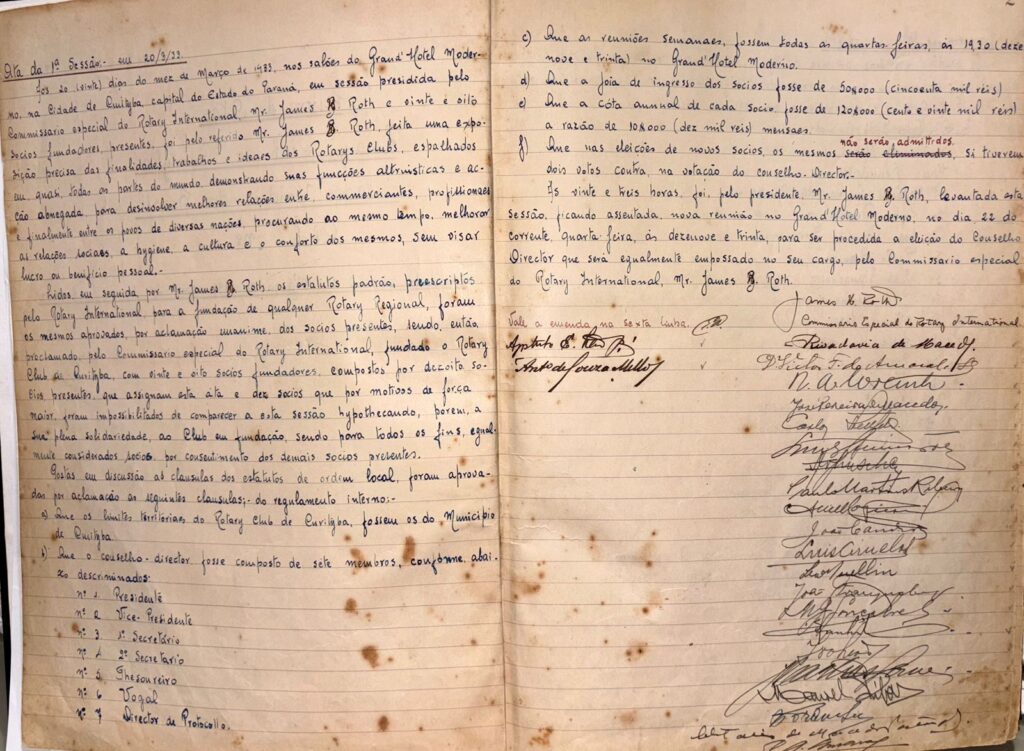 Ata da 1ª Sessão.- em 20/3/33.
Aos 20 (vinte) dias do mez de Março de 1933, nos salões do Grand'Hotel Moder-
no, na Cidade de Curityba, capital do Estado do Paraná, em sessão presidida pelo
Commissario especial do Rotary International, Mr. James Roth e vinte e oito
socios fundadores, presentes, foi pelo referido Mr. James Roth, feita uma expo-
sição precisa das finalidades, trabalhos e ideaes dos Rotarys Clubs, espalhados
em quasi todas as partes do mundo, demonstrando suas funcções altruisticas e ac-
ção abnegada, para desinvolver melhores relações entre, commerciantes, profissionaes
e finalmente entre os povos de diversas nações, procurando ao mesmo tempo, melhorar
as relações sociaes, a hygiene, a cultura e o conforto dos mesmos, sem visar
lucro ou beneficio pessoal.-
Lidos em seguida por Mr. James Roth, os estatutos padrão, preescriptos
pelo Rotary International, para a fundação de qualquer Rotary Regional, foram
os mesmos aprovados, por aclamação unanime, dos socios presentes, sendo, então
proclamado, pelo Commissario especial do Rotary International, fundado o Rotary
Club de Curityba, com vinte e oito socios fundadores, compostos por dezoito so-
cios presentes, que assignam esta ata e dez socios que por motivos de força
maior, foram impossibilitados de comparecer a esta sessão hypothecando, porém, a
sua plena solidariedade, ao Club em fundação, sendo para todos os fins, egual-
mente considerados socios, por consentimento dos demais socios presentes.
Postas em discussão as clausulas dos estatutos de ordem local, foram aprova-
das por aclamação as seguintes clausulas;- do regulamento interno:-
a) Que os limites territoriaes do Rotary Club de Curityba, fossem os do Municipio
de Curityba
b) Que o conselho-director fosse composto de sete membros, confórme abai-
xo descriminados:
nº 1 Presidente
nº 2 Vice-Presidente
nº 3 1º Secretário
nº 4 2º Secretario
nº 5 Thesoureiro
nº 6 Vogal
nº 7 Director de Protocollo.
c) Que as reuniões semanaes, fossem todas as quartas feiras, ás 19,30 (deze
nove e trinta) no Grand'Hotel Moderno.
d) Que a joia de ingresso dos socios fosse de 50$000 (cincoenta mil réis)
e) Que a cóta annual de cada socio fosse de 120$000 (cento e vinte mil reis)
a razão de 10$000 (dez mil reis) mensaes.
não serão admittidos
f) Que nas eleições de novos socios, os mesmos serão eliminados, si tiverem
dois votos contra, na votação do conselho-Director.-
Ás vinte e tres horas, foi, pelo presidente, Mr. James Roth, levantada esta
sessão, ficando assentada, nova reunião no Grand'Hotel Moderno, no dia 22 do
corrente, quarta-feira, ás dezenove e trinta, para ser procedida a eleição do Conselho
Director que será egualmente empossado no seu cargo, pelo Commissario especial
do Rotary International, Mr. James Roth.
James Roth
Commissario Especial do Rotary International.
Vale a emenda na sexta linha.
Rivadavia de Macedo
Antº de Souza Mello
Victor F. do Amaral
José Pereira de Macedo
Carlos
Paulo Martins
João
Luis
João
Gonçalves
Manuel